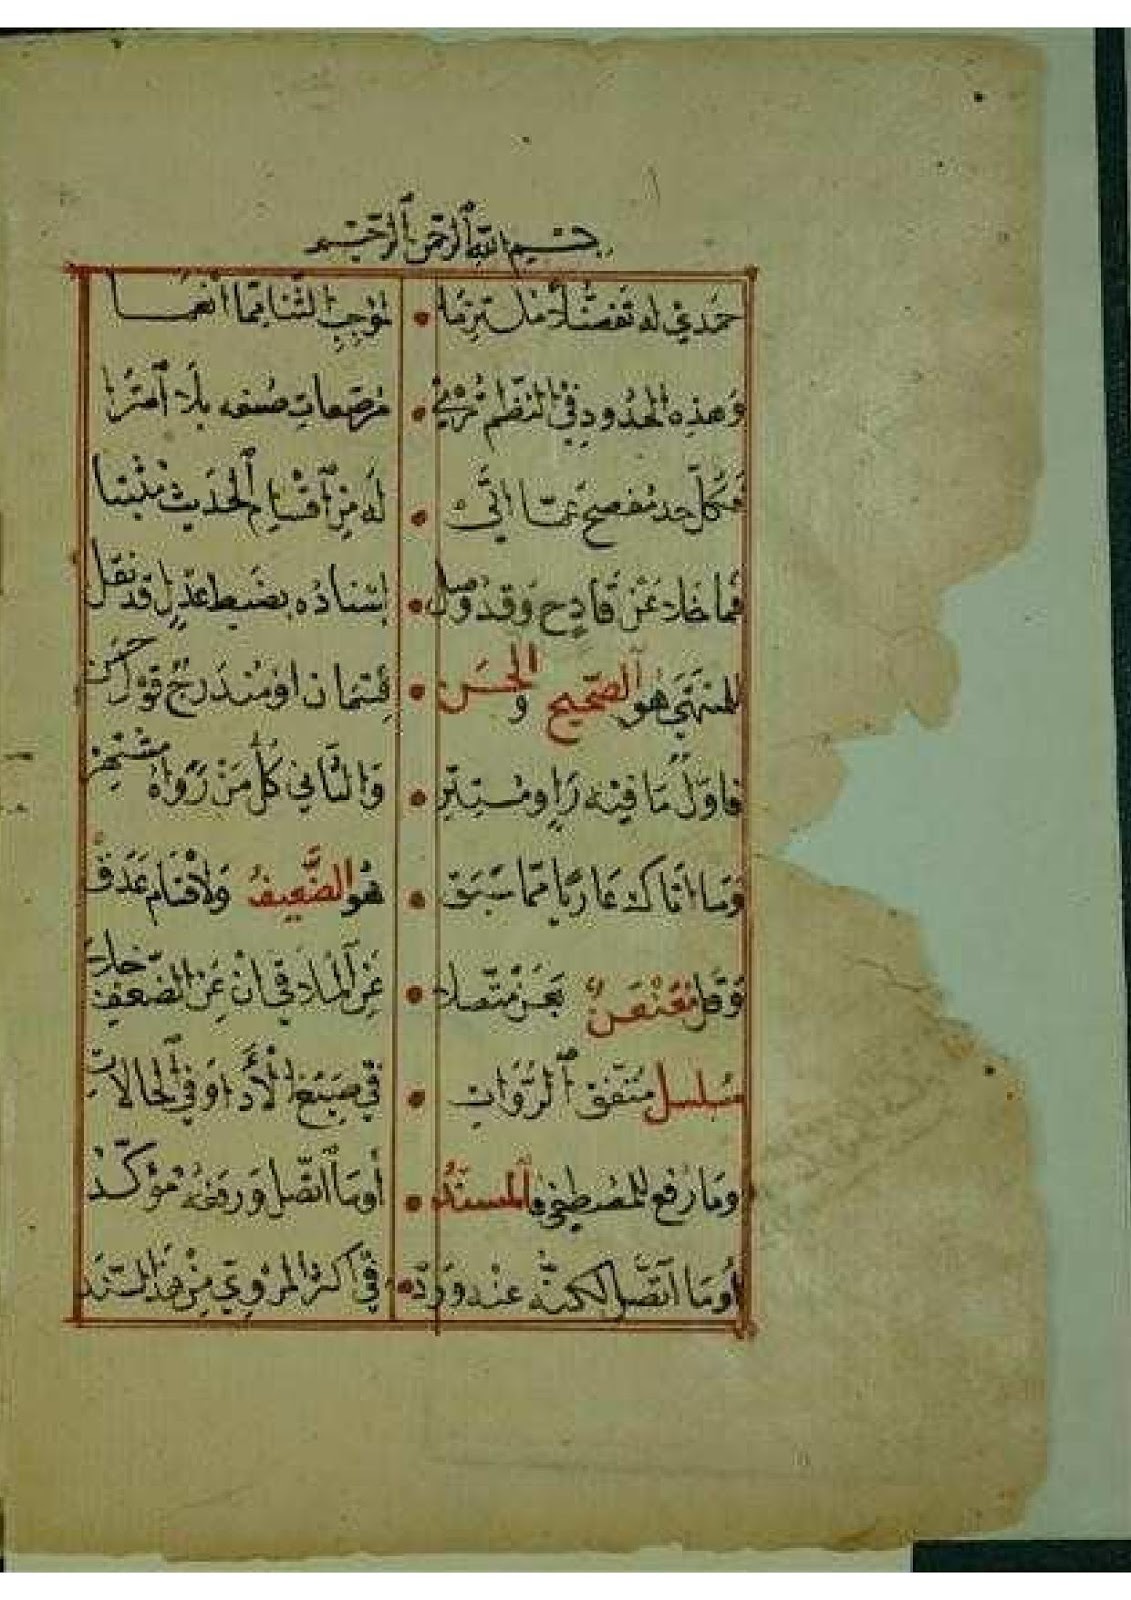 بسم الله الرحمن الرحيم
حمدي له تفضلا ملتزما • لموجب الثنا مما أنعما
وهذه الحدود في النظم ترى • مرصعات صنعه بلا امترا
فكل حد مفصح عما اتى • له من اقسام الحديث مثبتا
فما خلا عن قادح وقد وصل • اسناده بضبط عدل قد نقل
للمنتهى هو الصحيح والحسن • قسمان او مندرج قول حسن
فاول ما فيه راو مستتر • والثاني كل من رواه مشتهر
وما اتاك عاريا مما سبق • هو الضعيف ولاقسام
وقل معنعن بعن متصلا • عن الملاقي ان عن الضعف خلا
مسلسل متفق الروات • في صيغ الأدا او في الحالات
وما رفع للمصطفى فالمسند • أو ما اتصل ورفعه مؤكد
أو ما اتصل لكنه عنه ورد • في اكثر المروي من هذا السند